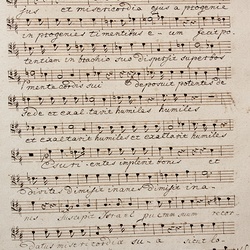 jus et misericordia ejus a progenie
in progenies timentibus e - um fecit po
tentiam in brachio suo dispersit superbos
mente cordis sui deposuit potentes de
sede et exaltavit humiles humiles
et exaltavit humiles et exaltavit humiles
Esurientes implevit bonis et
divites dimisit inanes dimisit ina-
nis. suscepit Israel puerum suum recor
datus misericordia sua